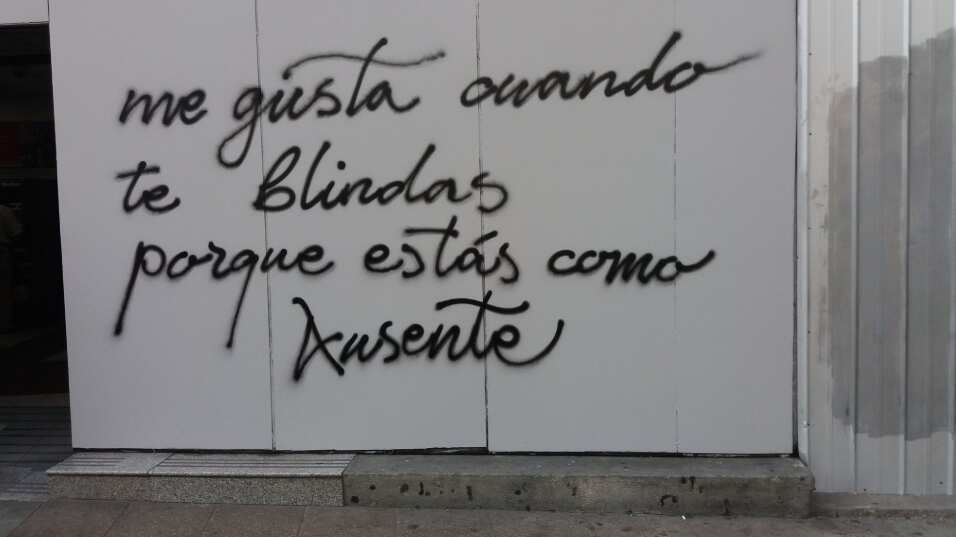 me gusta cuando
te blindas
porque estás como
Ausente